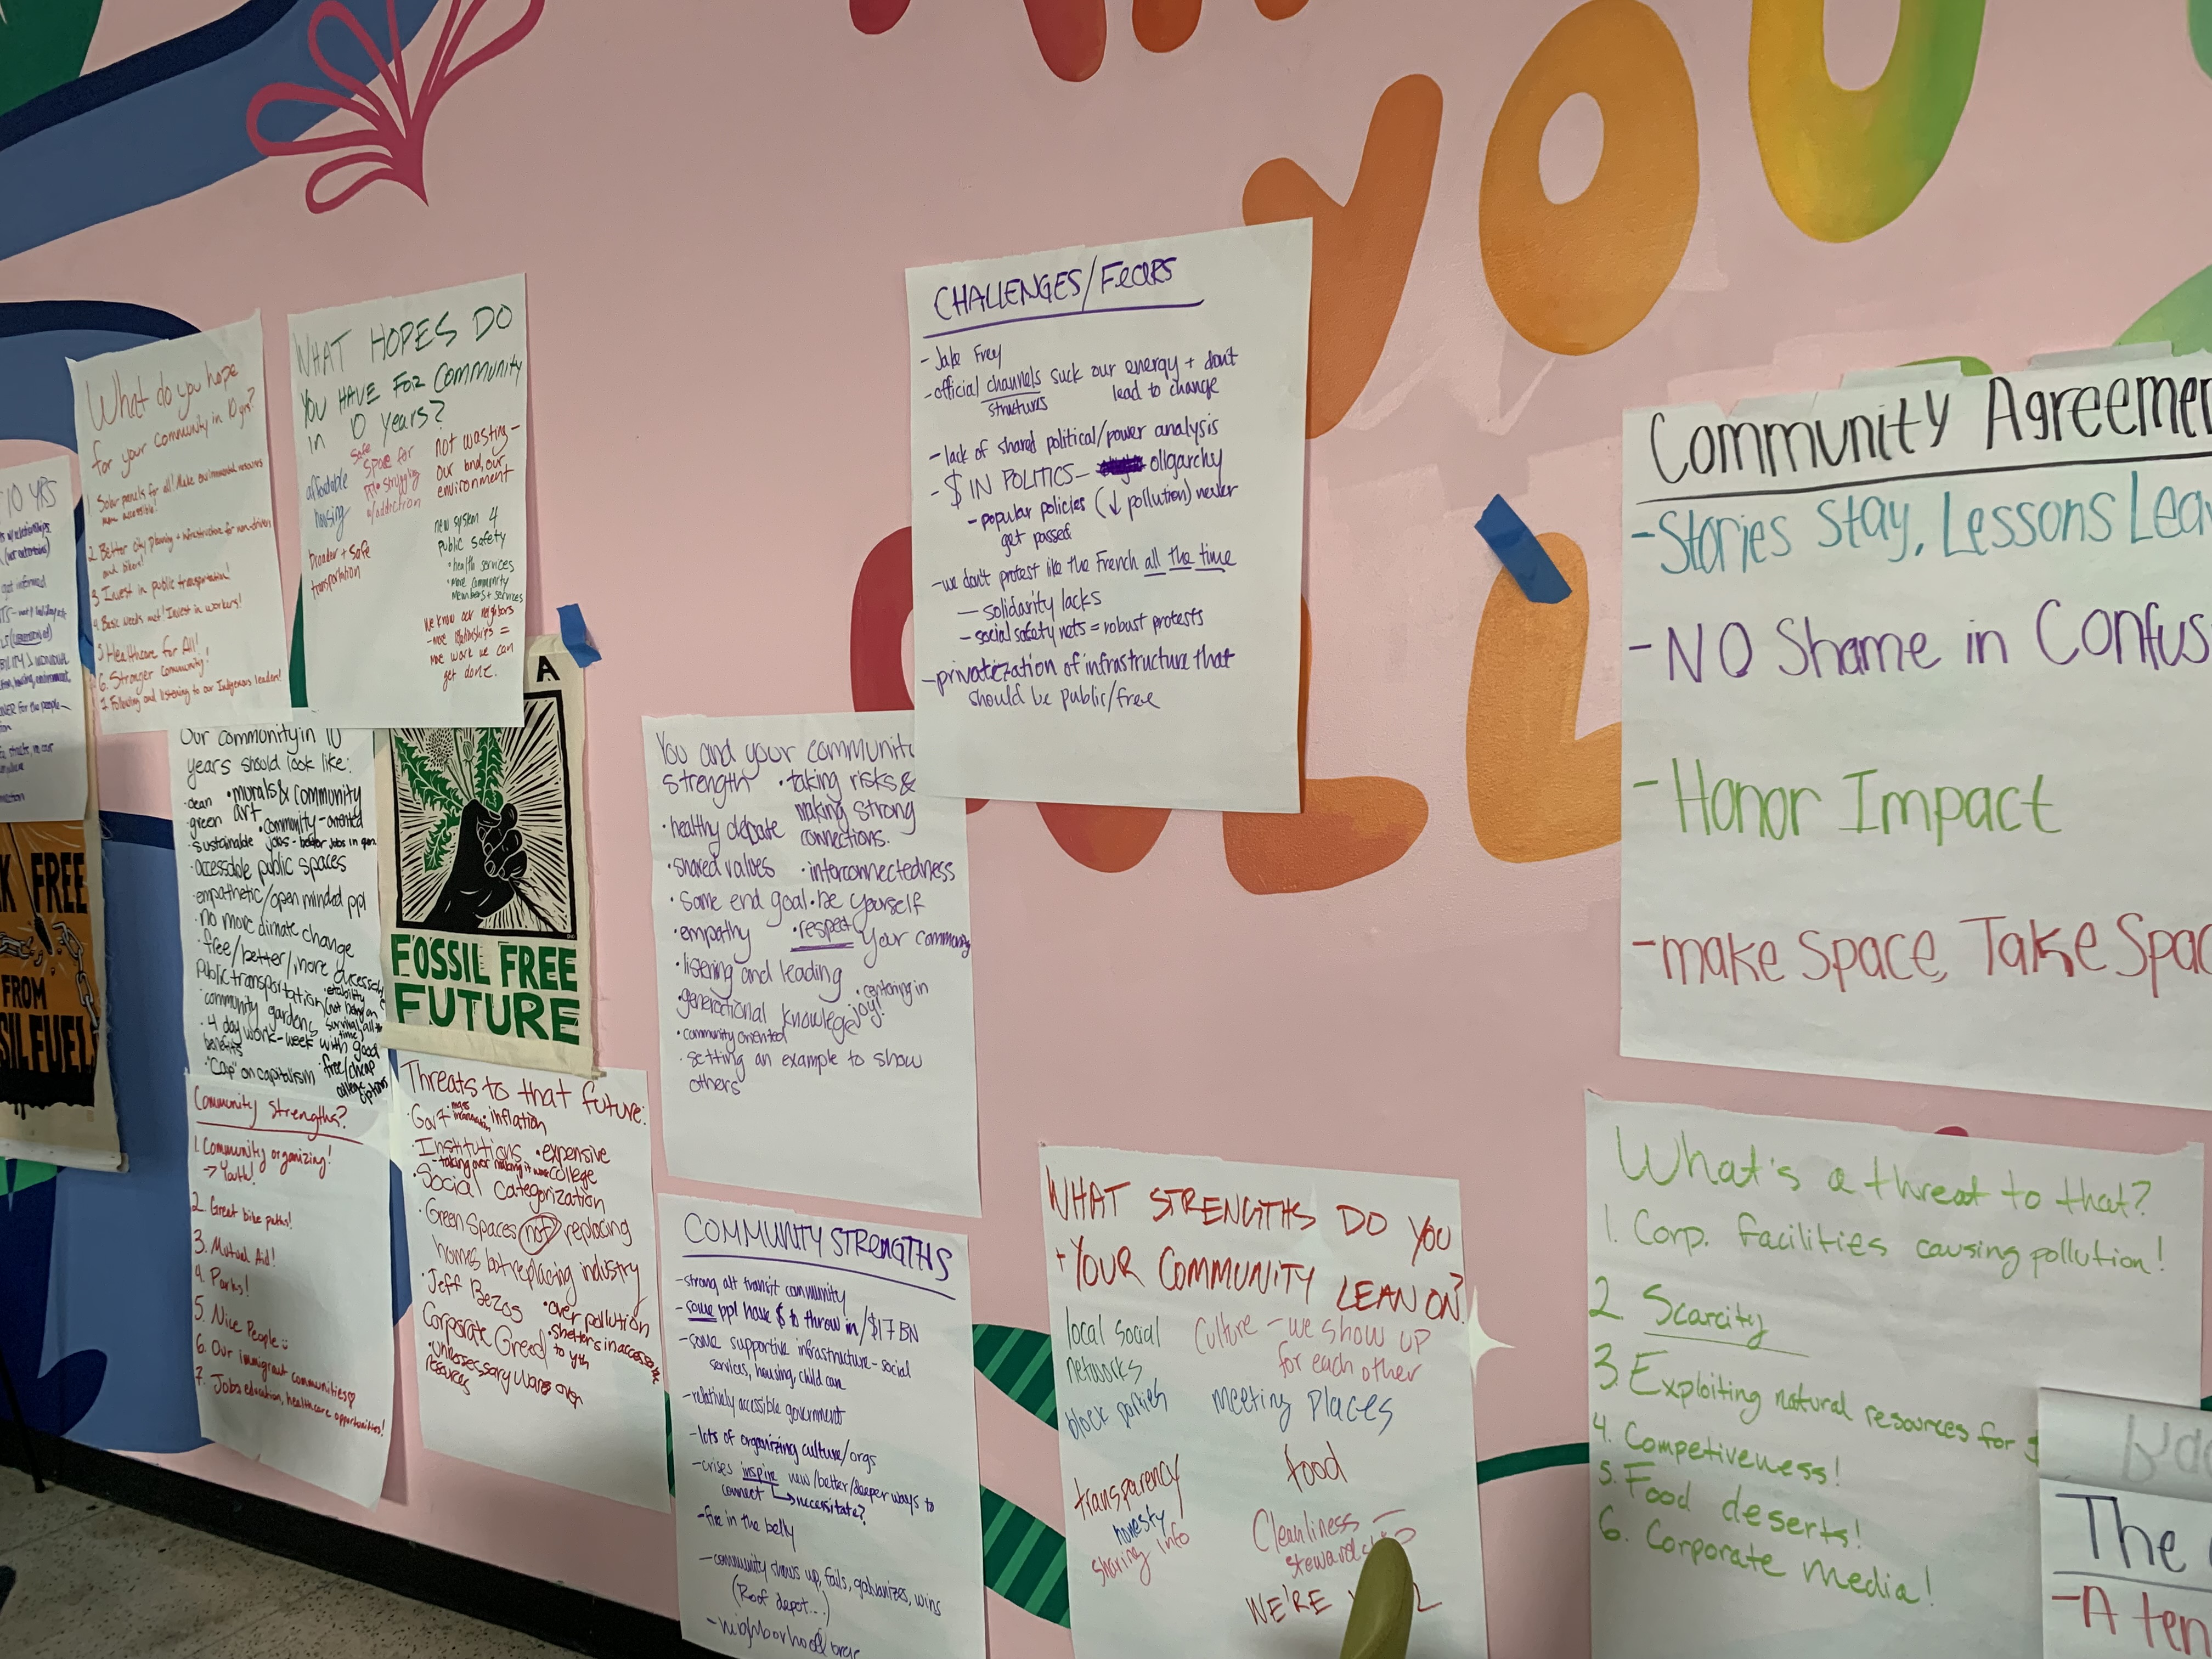 YOU
10 YRS
got informed
K FREE
FROM
SIL FUEL
What do you hope
for your community in 10 yrs?
1. Solar panels for all! Make environmental resources
more accessible!
2. Better city planning + infrastructure for non-drivers
and bikers!
3. Invest in public transportation!
4. Basic needs met! Invest in workers!
5. Healthcare for All!
6. Stronger Community!
7. Following and listening to our Indigenous leaders!
WHAT HOPES DO
YOU HAVE FOR COMMUNITY
IN 10 years?
affordable
housing
broader + safe
transportation
Safe
space for
ppl struggling
w/addiction
not wasting -
our land, our
environment
new system 4
public safety
• health services
• more community
members + services
We know our neighbors
- more relationships =
more work we can
get done.
Our community in 10
years should look like:
• clean
green
• murals & community
art
• community-oriented
sustainable jobs - better jobs in gen.
• accessable public spaces
• empathetic/open minded ppl
• no more climate change
• free/better/more accessable
public transportation
• stability
(not being on
survival all the
time)
• community gardens
• 4 day work-week with good
benefits
• "Cap" on capitalism
• free/cheap
college
options
A
FOSSIL FREE
FUTURE
Community Strengths?
1. Community organizing!
→ Youth!
2. Great bike paths!
3. Mutual Aid!
4. Parks!
5. Nice People
6. Our immigrant communities
7. Jobs, education, healthcare opportunities!
Threats to that future:
• Gov't
• inflation
• Institutions
• expensive
college
- taking over making it worse
• Social categorization
• Green spaces not replacing
homes but replacing industry
• Jeff Bezos
• over pollution
Corporate Greed
• shelters inaccessible
to yth
• unnecessary wars over
resources
You and your community
strength
• taking risks &
making strong
connections.
• healthy debate
• shared values
• interconnectedness
• Same end goal
• be yourself
• empathy
• respect your community
• listening and leading
• centering in
joy!
• generational knowlege
• community oriented
• setting an example to show
others
COMMUNITY STRENGTHS
- strong alt transit community
- some ppl have $ to throw in/$17 BN
- some supportive infrastructure - social
services, housing, child care
- relatively accessible government
- lots of organizing culture/orgs
- crises inspire new/better/deeper ways to
connect → necessitate?
- fire in the belly
- community shows up, fails, galvanizes, wins
(Roof depot...)
- neighborhood orgs
CHALLENGES/FEARS
- Jake Frey
- official channels suck our energy + don't
structures lead to change
- lack of shared political/power analysis
- $ IN POLITICS - oligarchy
- popular policies (↓ pollution) never
get passed
- we don't protest like the French all the time
— solidarity lacks
- social safety nets = robust protests
- privatization of infrastructure that
should be public/free
WHAT STRENGTHS DO YOU
+ YOUR COMMUNITY LEAN ON?
local social
networks
block parties
transparency
honesty
sharing info
Culture - we show up
for each other
Meeting Places
food
Cleanliness -
WE'RE
Community Agreemen
- Stories Stay, Lessons Leav
- NO Shame in Confus
- Honor Impact
- make Space, Take Spac
What's a threat to that?
1. Corp. facilities causing pollution!
2. Scarcity
3. Exploiting natural resources for
4. Competiveness!
5. Food deserts!
6. Corporate media!
The
- A ten